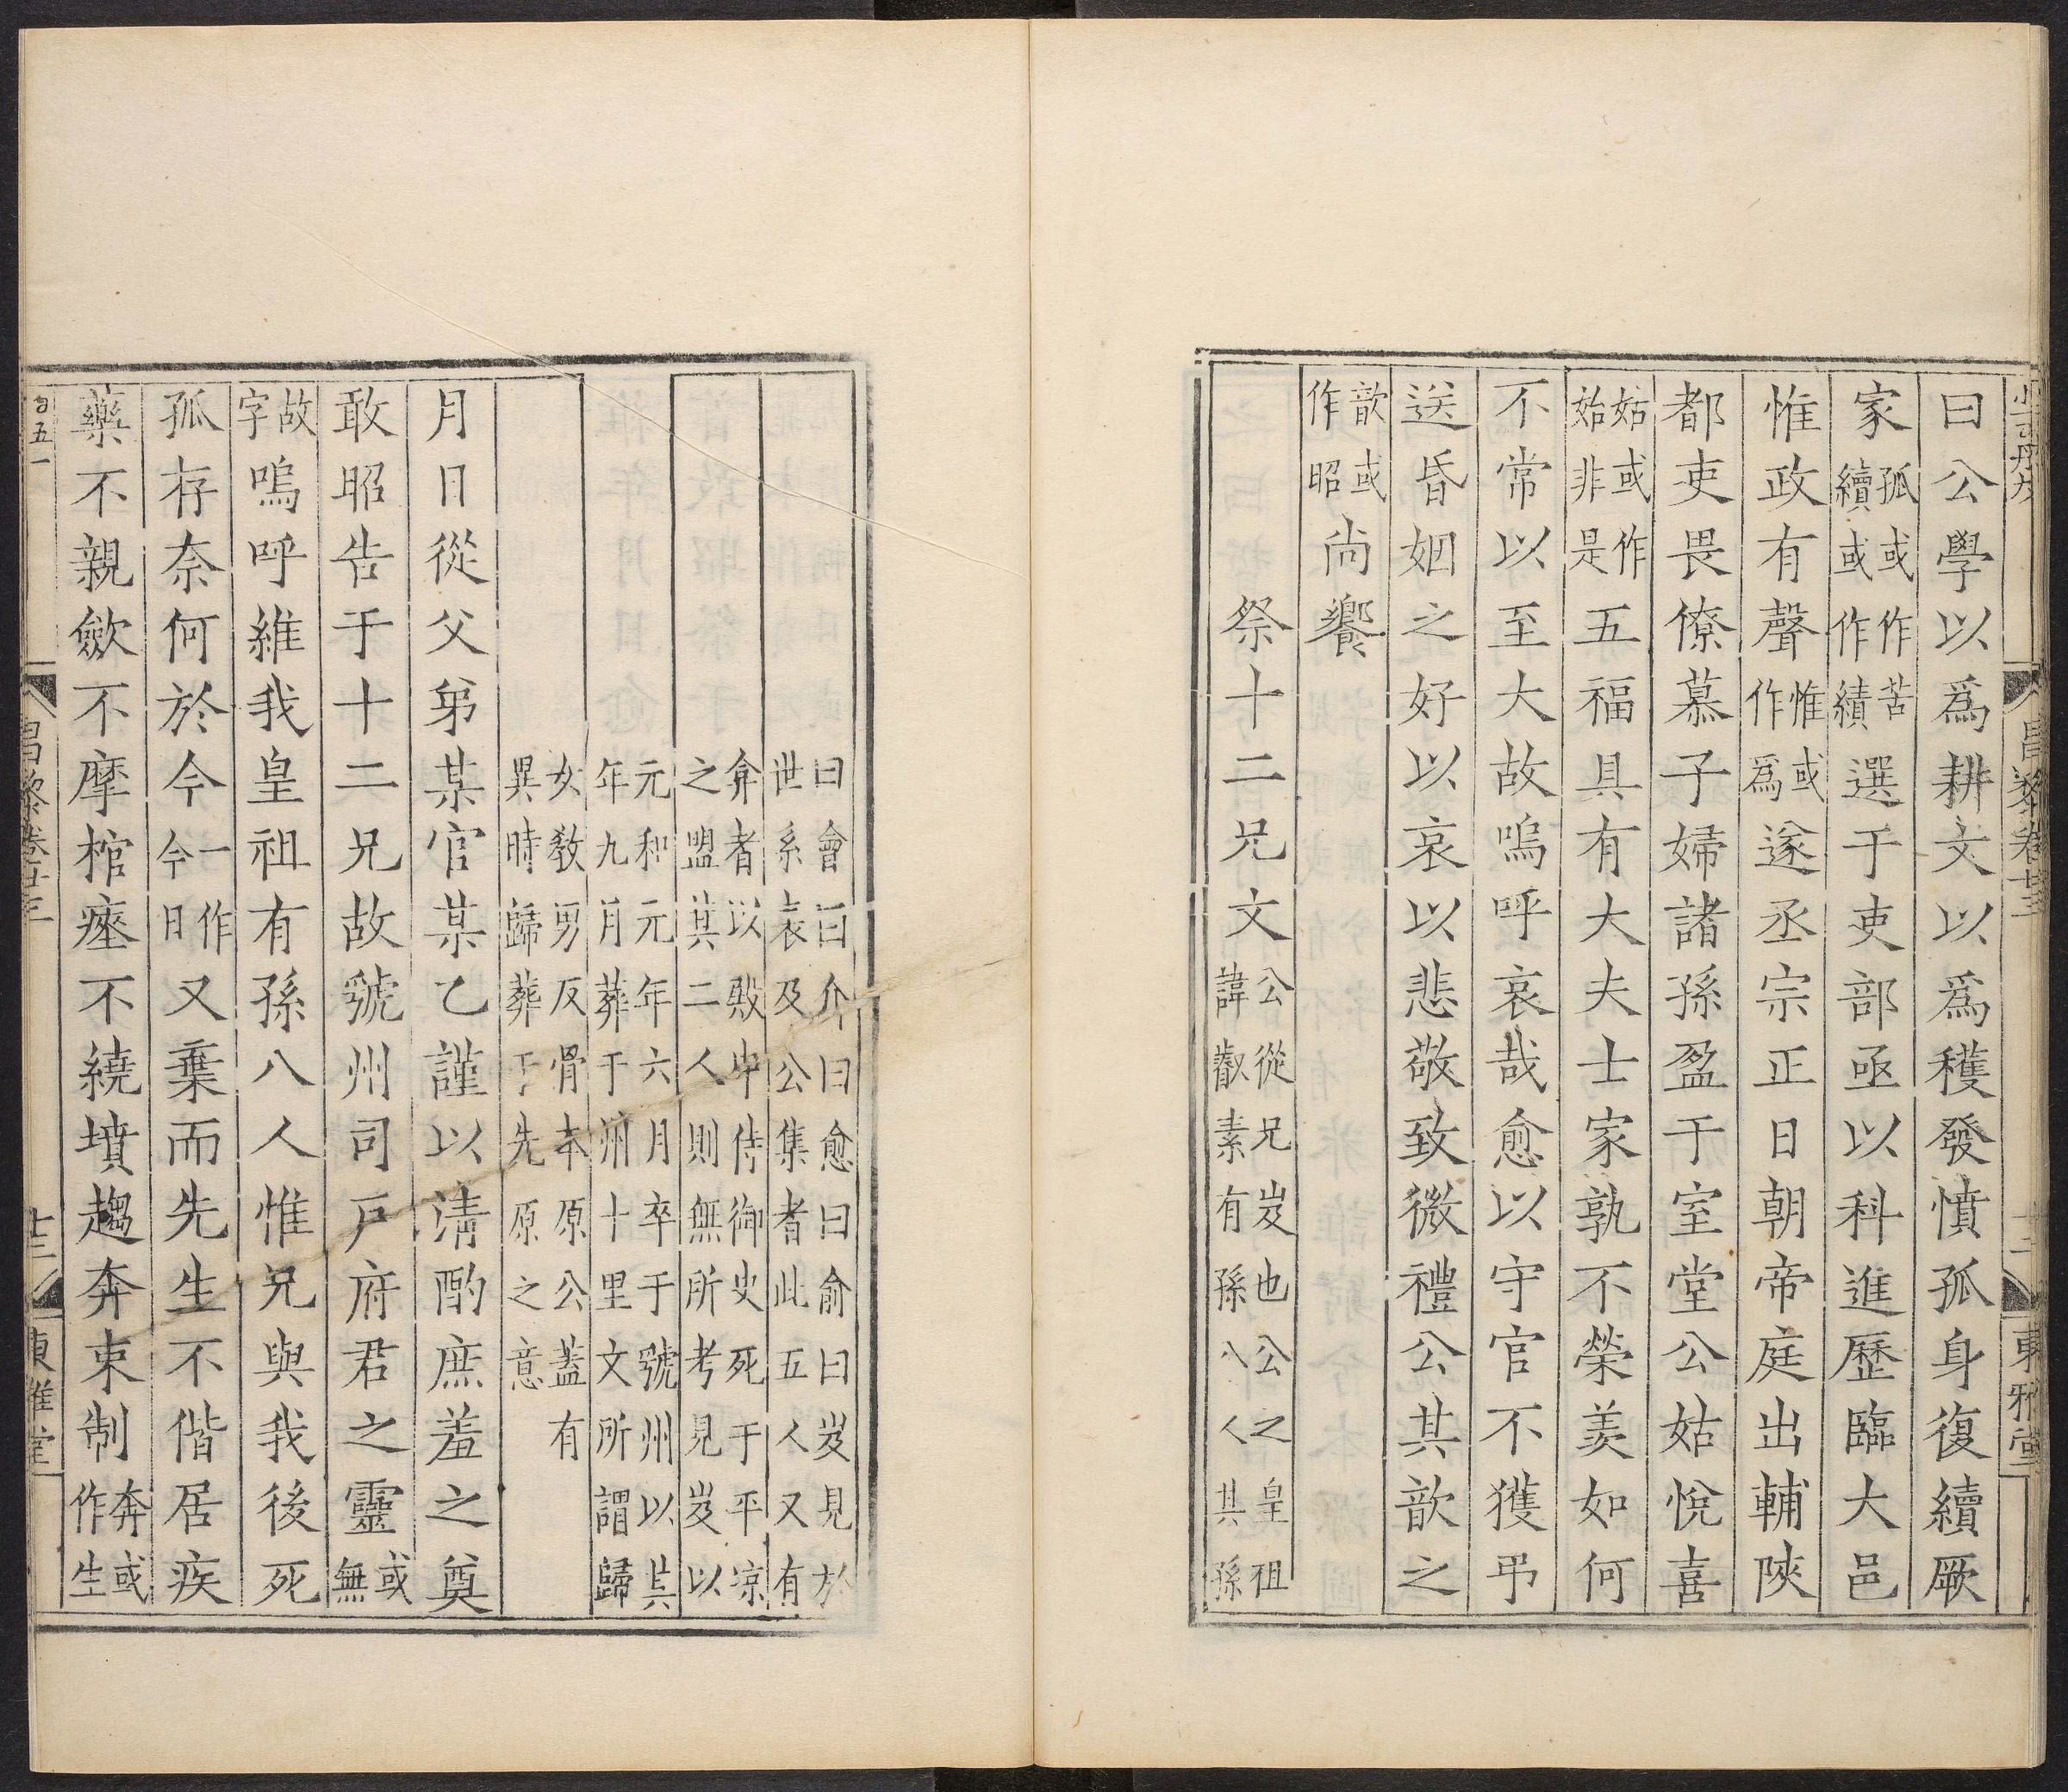 曰公學以爲耕文以爲穫發憤孤身復續厥
家孤或作苦續或作績選于吏部亟以科進歷臨大邑
惟政有聲惟或作爲遂丞宗正日朝帝庭出輔陝
都吏畏僚慕子婦諸孫盈于室堂公姑悅喜
姑或作始非是五福具有大夫士家孰不榮羨如何
不常以至大故嗚呼哀哉愈以守官不獲弔
送昏姻之好以哀以悲敬致微禮公其歆之
歆或作昭尚饗
祭十二兄文公從兄岌也公之皇祖諱叡素有孫八人其孫
曰會曰介曰愈曰俞曰岌見於世系表及公集者此五人又有
弇者以殿中侍御史死于平涼之盟其二人則無所考見岌以
元和元年六月卒于虢州以其年九月葬于洲十里文所謂歸
女教男反骨本原公蓋有異時歸葬于先原之意
月日從父弟某官某乙謹以清酌庶羞之奠
敢昭告于十二兄故虢州司戶府君之靈或無
故字嗚呼維我皇祖有孫八人惟兄與我後死
孤存奈何於今一作今日又棄而先生不偕居疾
藥不親斂不摩棺瘞不繞墳趨奔束制奔或作生
昌黎卷廿三
十三
東雅堂